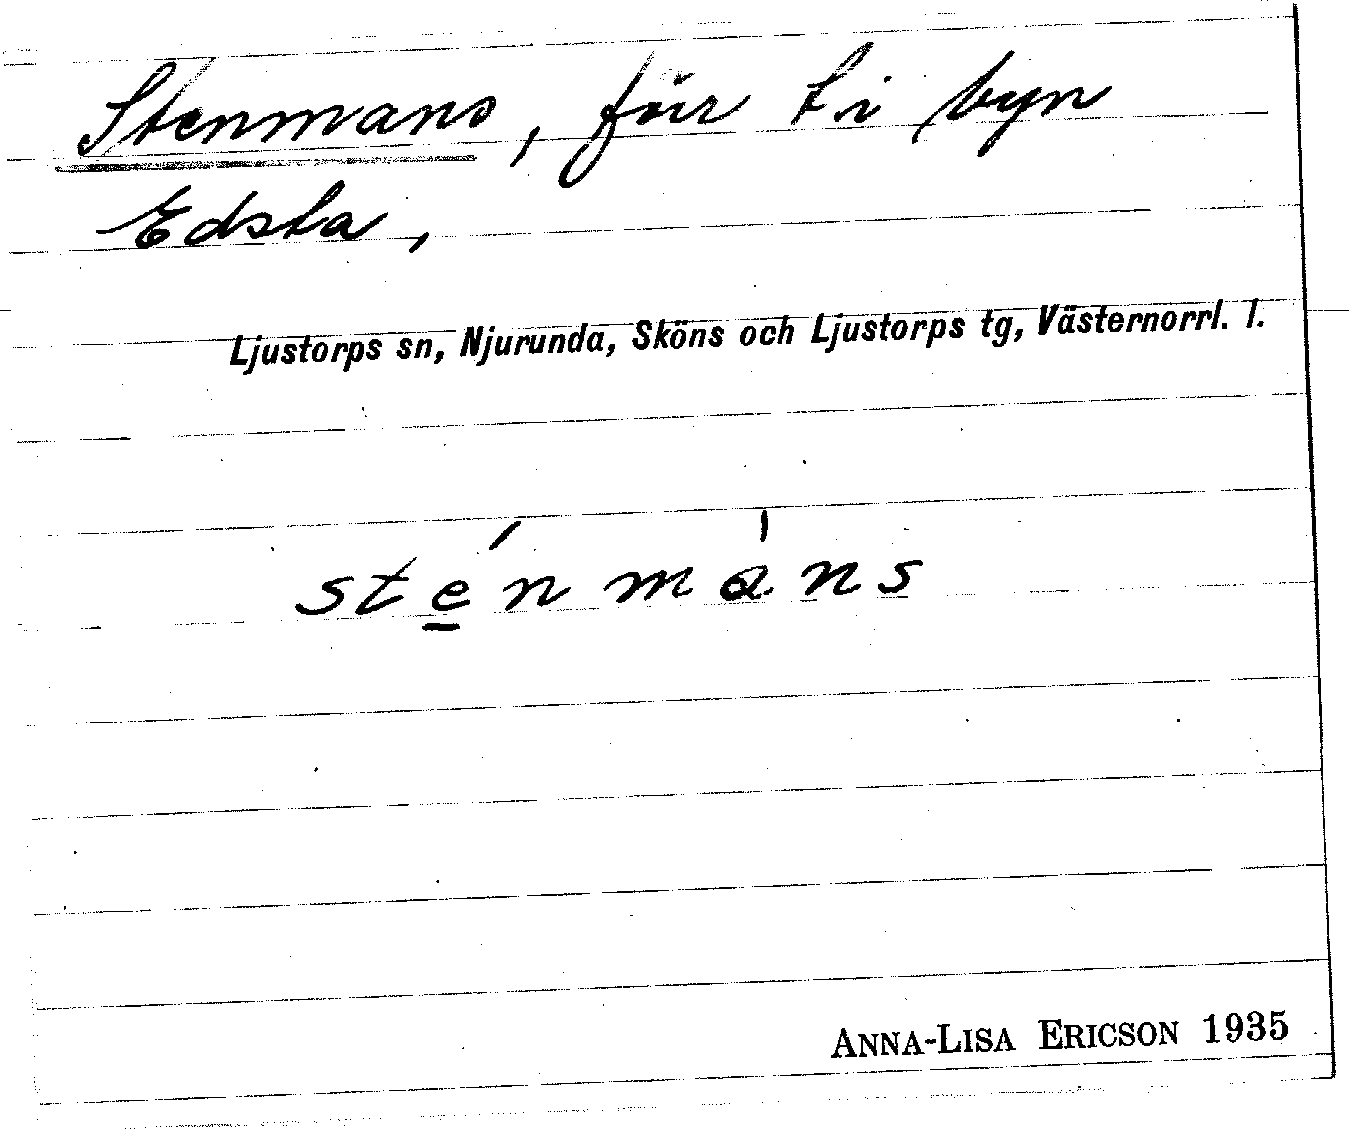 Stenmans, för t. i byn
Edsta,
Ljustorps sn, Njurunda, Sköns och Ljustorps tg, Västernorrl. l.
ste̱´nma'ns
ANNA-LISA ERICSON 1935